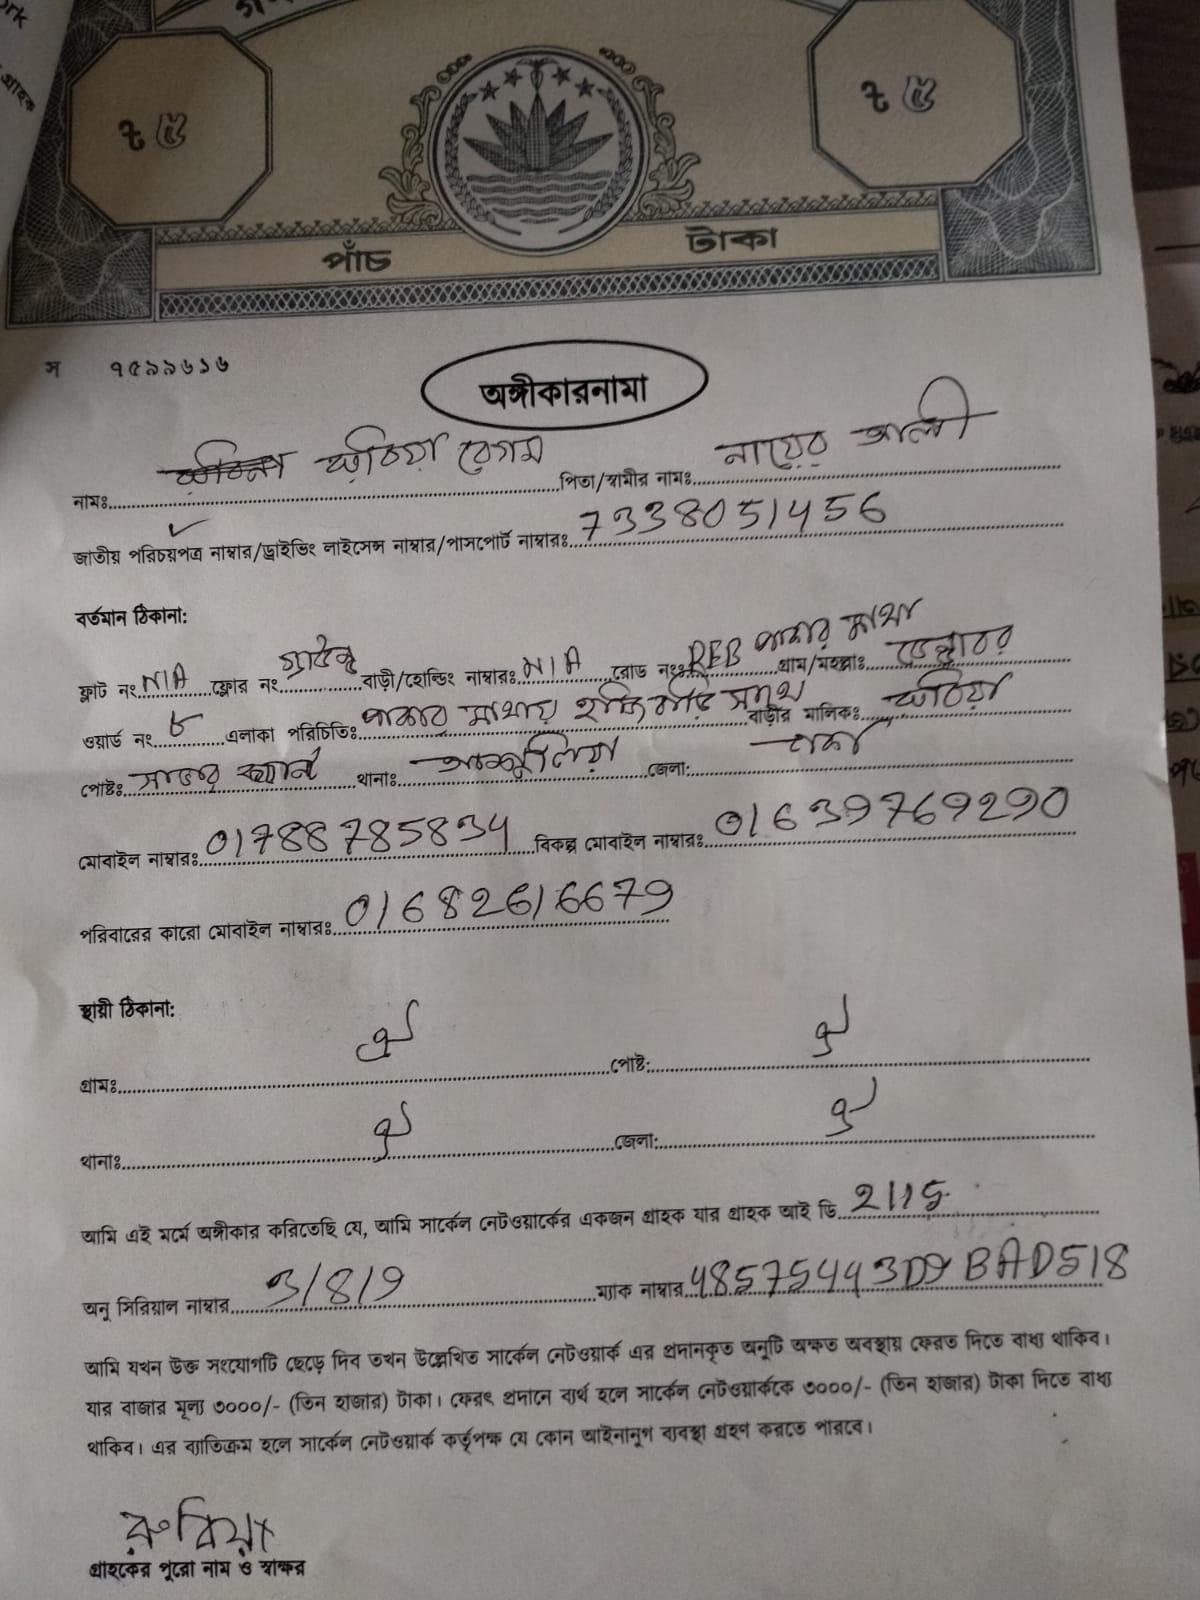 ৳ ৫
৳ ৫
পাঁচ টাকা
স ৭৫৯৯৬১৬
অঙ্গীকারনামা
নামঃ বেগম পিতা/স্বামীর নামঃ নায়েব আলী
জাতীয় পরিচয়পত্র নাম্বার/ড্রাইভিং লাইসেন্স নাম্বার/পাসপোর্ট নাম্বারঃ 7338051456
বর্তমান ঠিকানা:
ফ্লাট নং N/A ফ্লোর নং বাড়ী/হোল্ডিং নাম্বারঃ N/A রোড নংঃ REB পাকার মাথা গ্রাম/মহল্লাঃ ডেন্ডাবর
ওয়ার্ড নং ৮ এলাকা পরিচিতিঃ পাকার মাথায় বাড়ীর মালিকঃ
পোষ্টঃ সাভার ক্যান্ট থানাঃ আশুলিয়া জেলা: ঢাকা
মোবাইল নাম্বারঃ 01788785834 বিকল্প মোবাইল নাম্বারঃ 01639769290
পরিবারের কারো মোবাইল নাম্বারঃ 01682616679
স্থায়ী ঠিকানা:
গ্রামঃ ঐ পোষ্ট: ঐ
থানাঃ ঐ জেলা: ঐ
আমি এই মর্মে অঙ্গীকার করিতেছি যে, আমি সার্কেল নেটওয়ার্কের একজন গ্রাহক যার গ্রাহক আই ডি 2115
অনু সিরিয়াল নাম্বার 31819 ম্যাক নাম্বার
আমি যখন উক্ত সংযোগটি ছেড়ে দিব তখন উল্লেখিত সার্কেল নেটওয়ার্ক এর প্রদানকৃত অনুটি অক্ষত অবস্থায় ফেরত দিতে বাধ্য থাকিব।
যার বাজার মূল্য ৩০০০/- (তিন হাজার) টাকা। ফেরৎ প্রদানে ব্যর্থ হলে সার্কেল নেটওয়ার্ককে ৩০০০/- (তিন হাজার) টাকা দিতে বাধ্য
থাকিব। এর ব্যাতিক্রম হলে সার্কেল নেটওয়ার্ক কর্তৃপক্ষ যে কোন আইনানুগ ব্যবস্থা গ্রহণ করতে পারবে।
গ্রাহকের পুরো নাম ও স্বাক্ষর